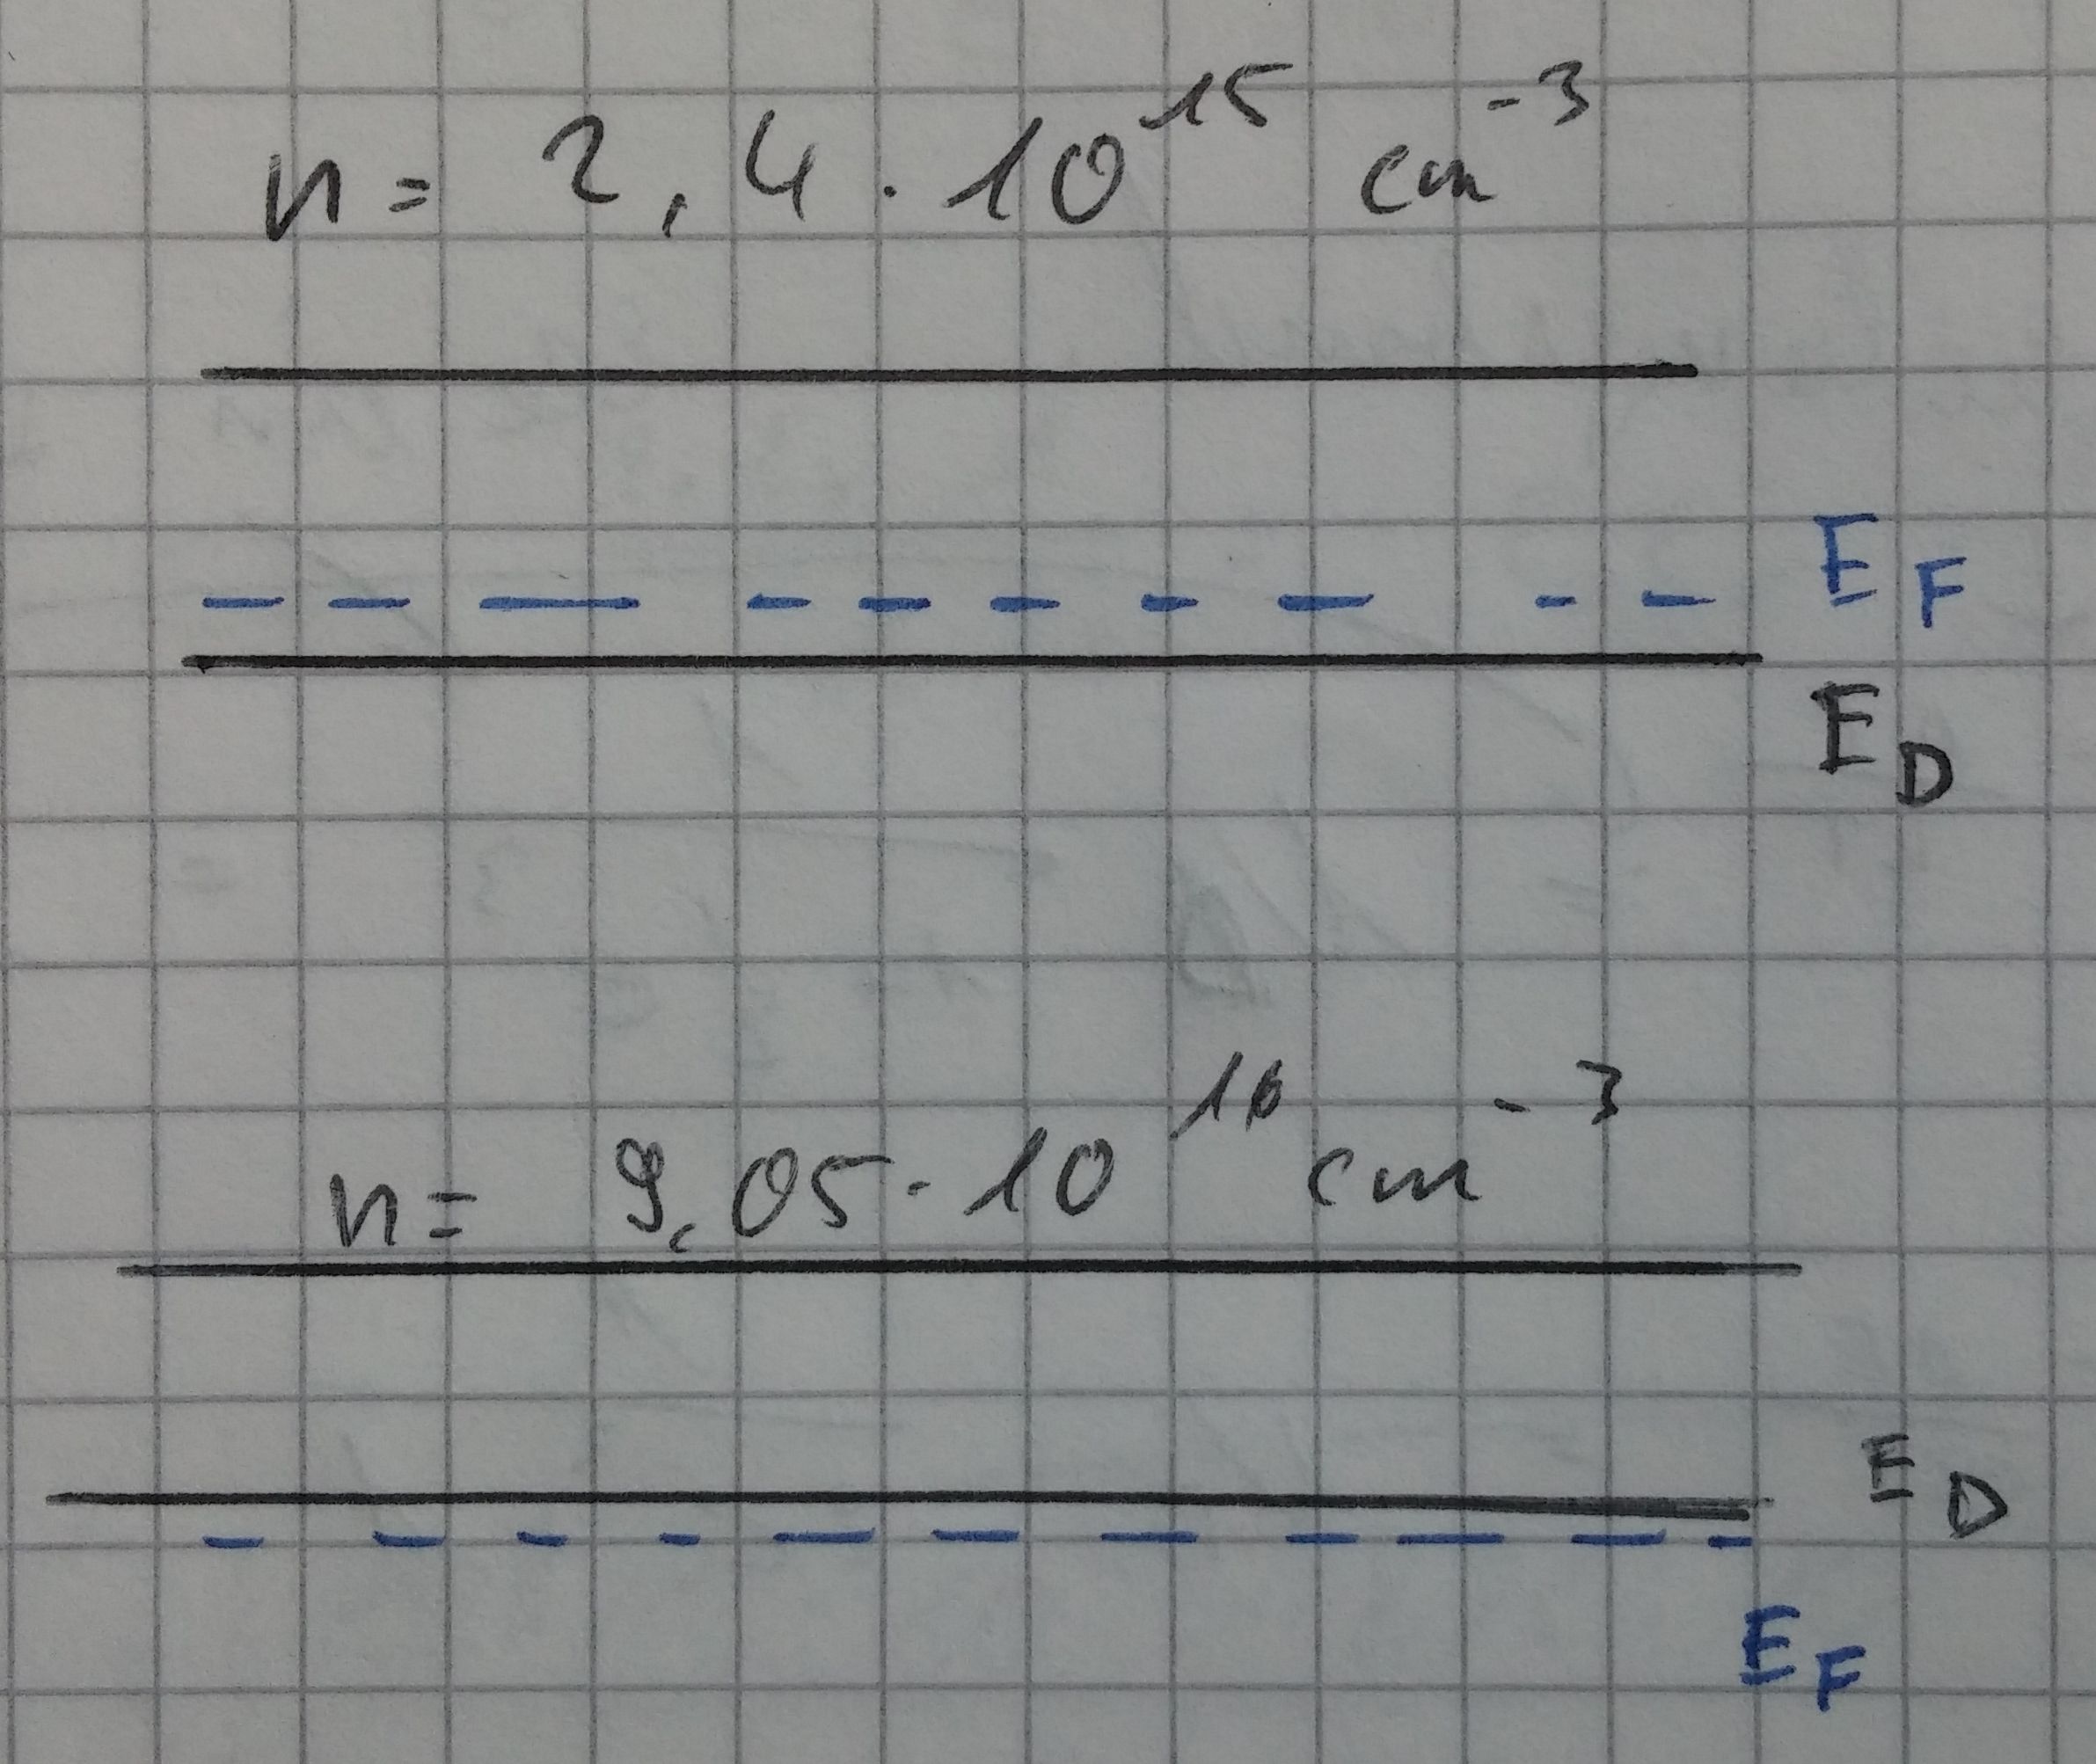 n = 2,4 · 10¹⁵ cm⁻³
E_F
E_D
n = 9,05 · 10¹⁶ cm⁻³
E_D
E_F